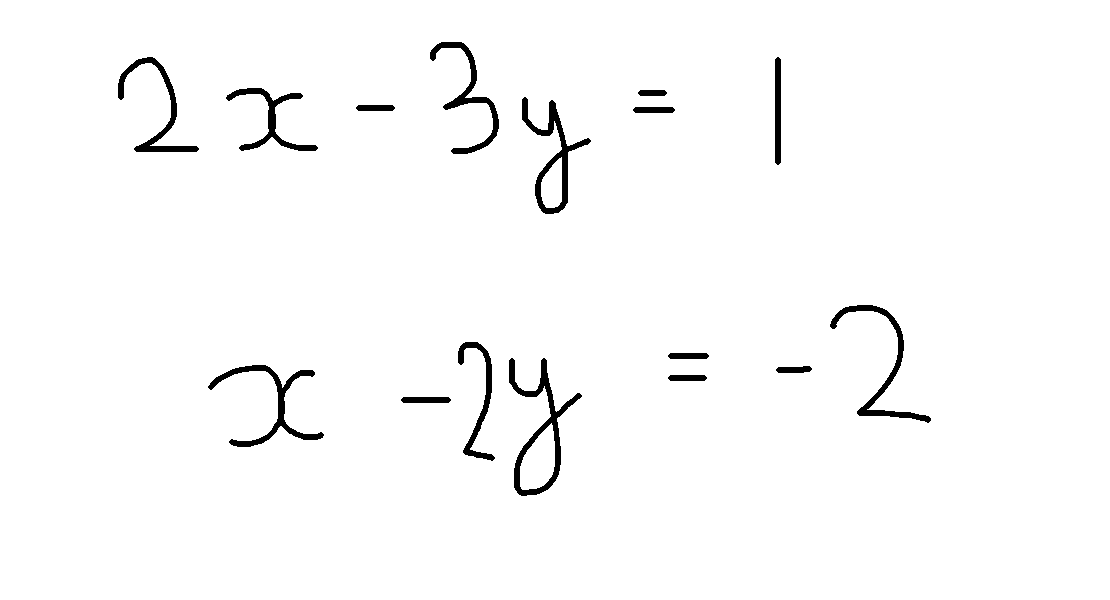 2x - 3y = 1
x - 2y = -2